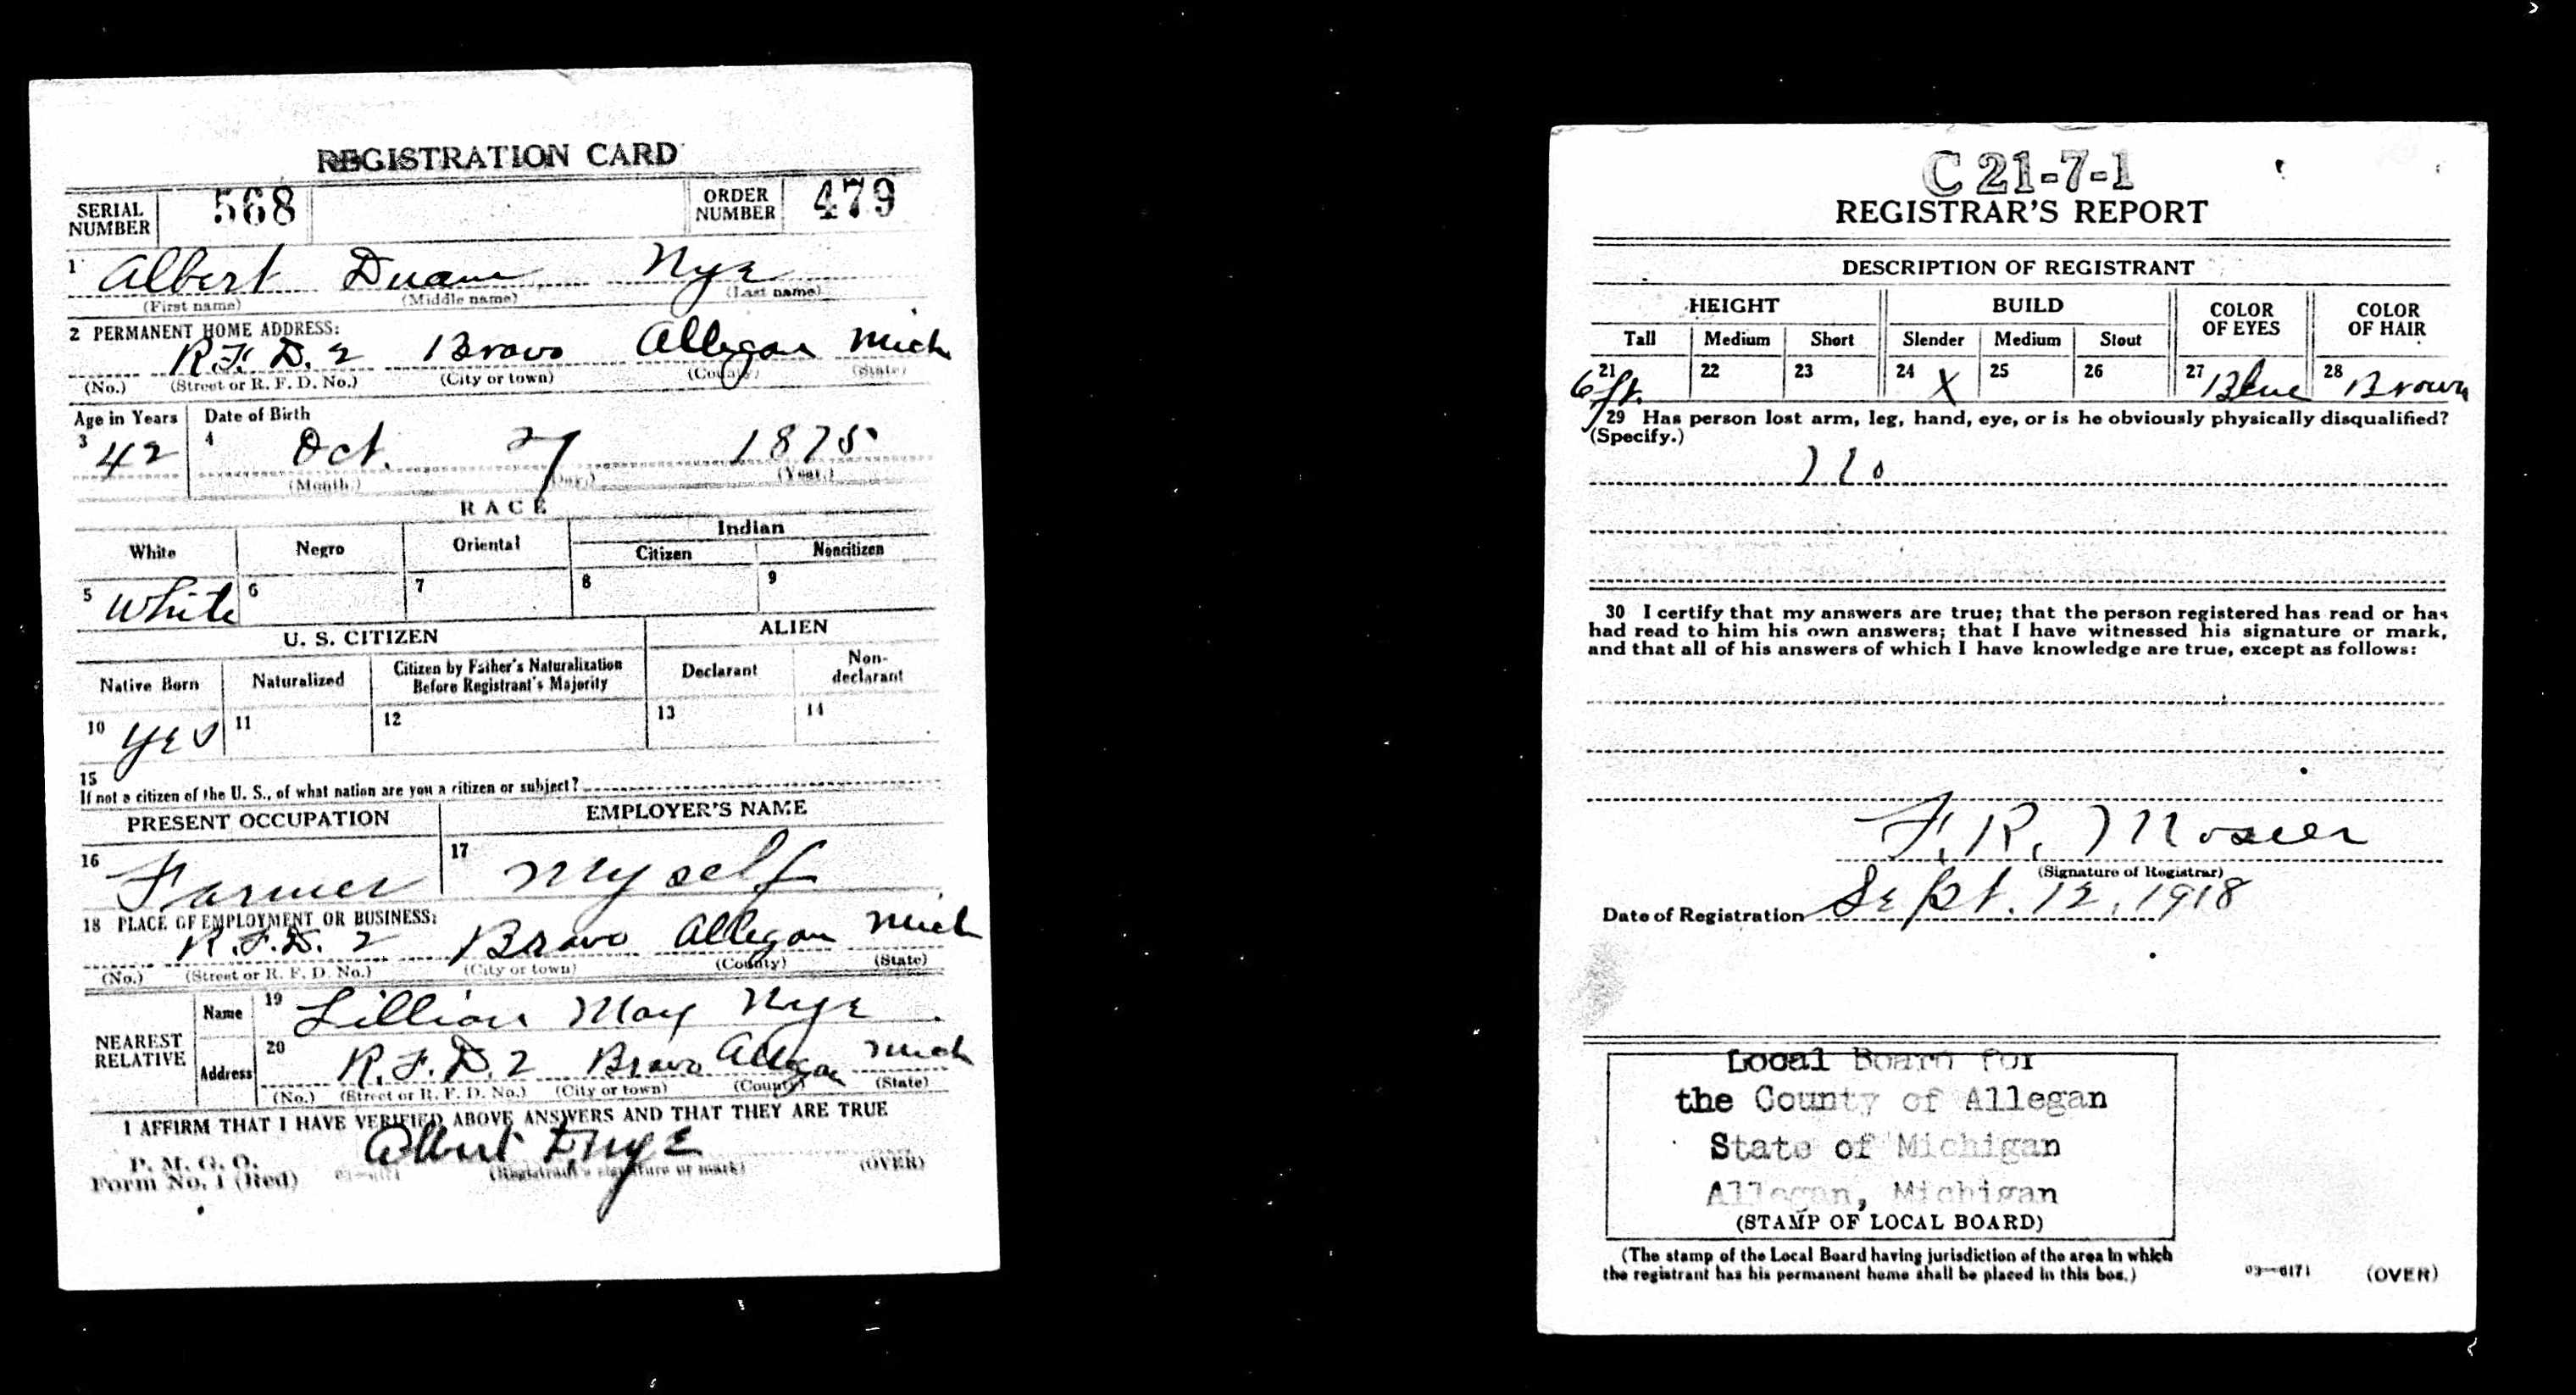 REGISTRATION CARD
SERIAL NUMBER 568 ORDER NUMBER 479
1 Albert Duane Nye
(First name) (Middle name) (Last name)
2 PERMANENT HOME ADDRESS:
R.F.D. 2 Bravo Allegan Mich
(No.) (Street or R. F. D. No.) (City or town) (County) (State)
Age in Years Date of Birth
3 42 4 Oct. 27 1875
(Month.) (Day.) (Year.)
RACE
White Negro Oriental Indian
Citizen Noncitizen
5 White 6 7 8 9
U. S. CITIZEN ALIEN
Native Born Naturalized Citizen by Father's Naturalization Before Registrant's Majority Declarant Non-declarant
10 Yes 11 12 13 14
15
If not a citizen of the U. S., of what nation are you a citizen or subject?
PRESENT OCCUPATION EMPLOYER'S NAME
16 Farmer 17 Myself
18 PLACE OF EMPLOYMENT OR BUSINESS:
R.F.D. 2 Bravo Allegan Mich
(No.) (Street or R. F. D. No.) (City or town) (County) (State)
NEAREST RELATIVE
Name 19 Lillian May Nye
Address 20 R.F.D. 2 Bravo Allegan Mich
(No.) (Street or R. F. D. No.) (City or town) (County) (State)
I AFFIRM THAT I HAVE VERIFIED ABOVE ANSWERS AND THAT THEY ARE TRUE
P. M. G. O.
Form No. 1 (Red) Albert D Nye
(Registrant's signature or mark) (OVER)
C 21-7-1
REGISTRAR'S REPORT
DESCRIPTION OF REGISTRANT
HEIGHT BUILD COLOR OF EYES COLOR OF HAIR
Tall Medium Short Slender Medium Stout
21 6 ft. 22 23 24 X 25 26 27 Blue 28 Brown
29 Has person lost arm, leg, hand, eye, or is he obviously physically disqualified?
(Specify.)
No
30 I certify that my answers are true; that the person registered has read or has
had read to him his own answers; that I have witnessed his signature or mark,
and that all of his answers of which I have knowledge are true, except as follows:
F. R. Mosier
(Signature of Registrar)
Date of Registration Sept. 12, 1918
Local Board for
the County of Allegan
State of Michigan
Allegan, Michigan
(STAMP OF LOCAL BOARD)
(The stamp of the Local Board having jurisdiction of the area in which
the registrant has his permanent home shall be placed in this box.)
03—6171 (OVER)